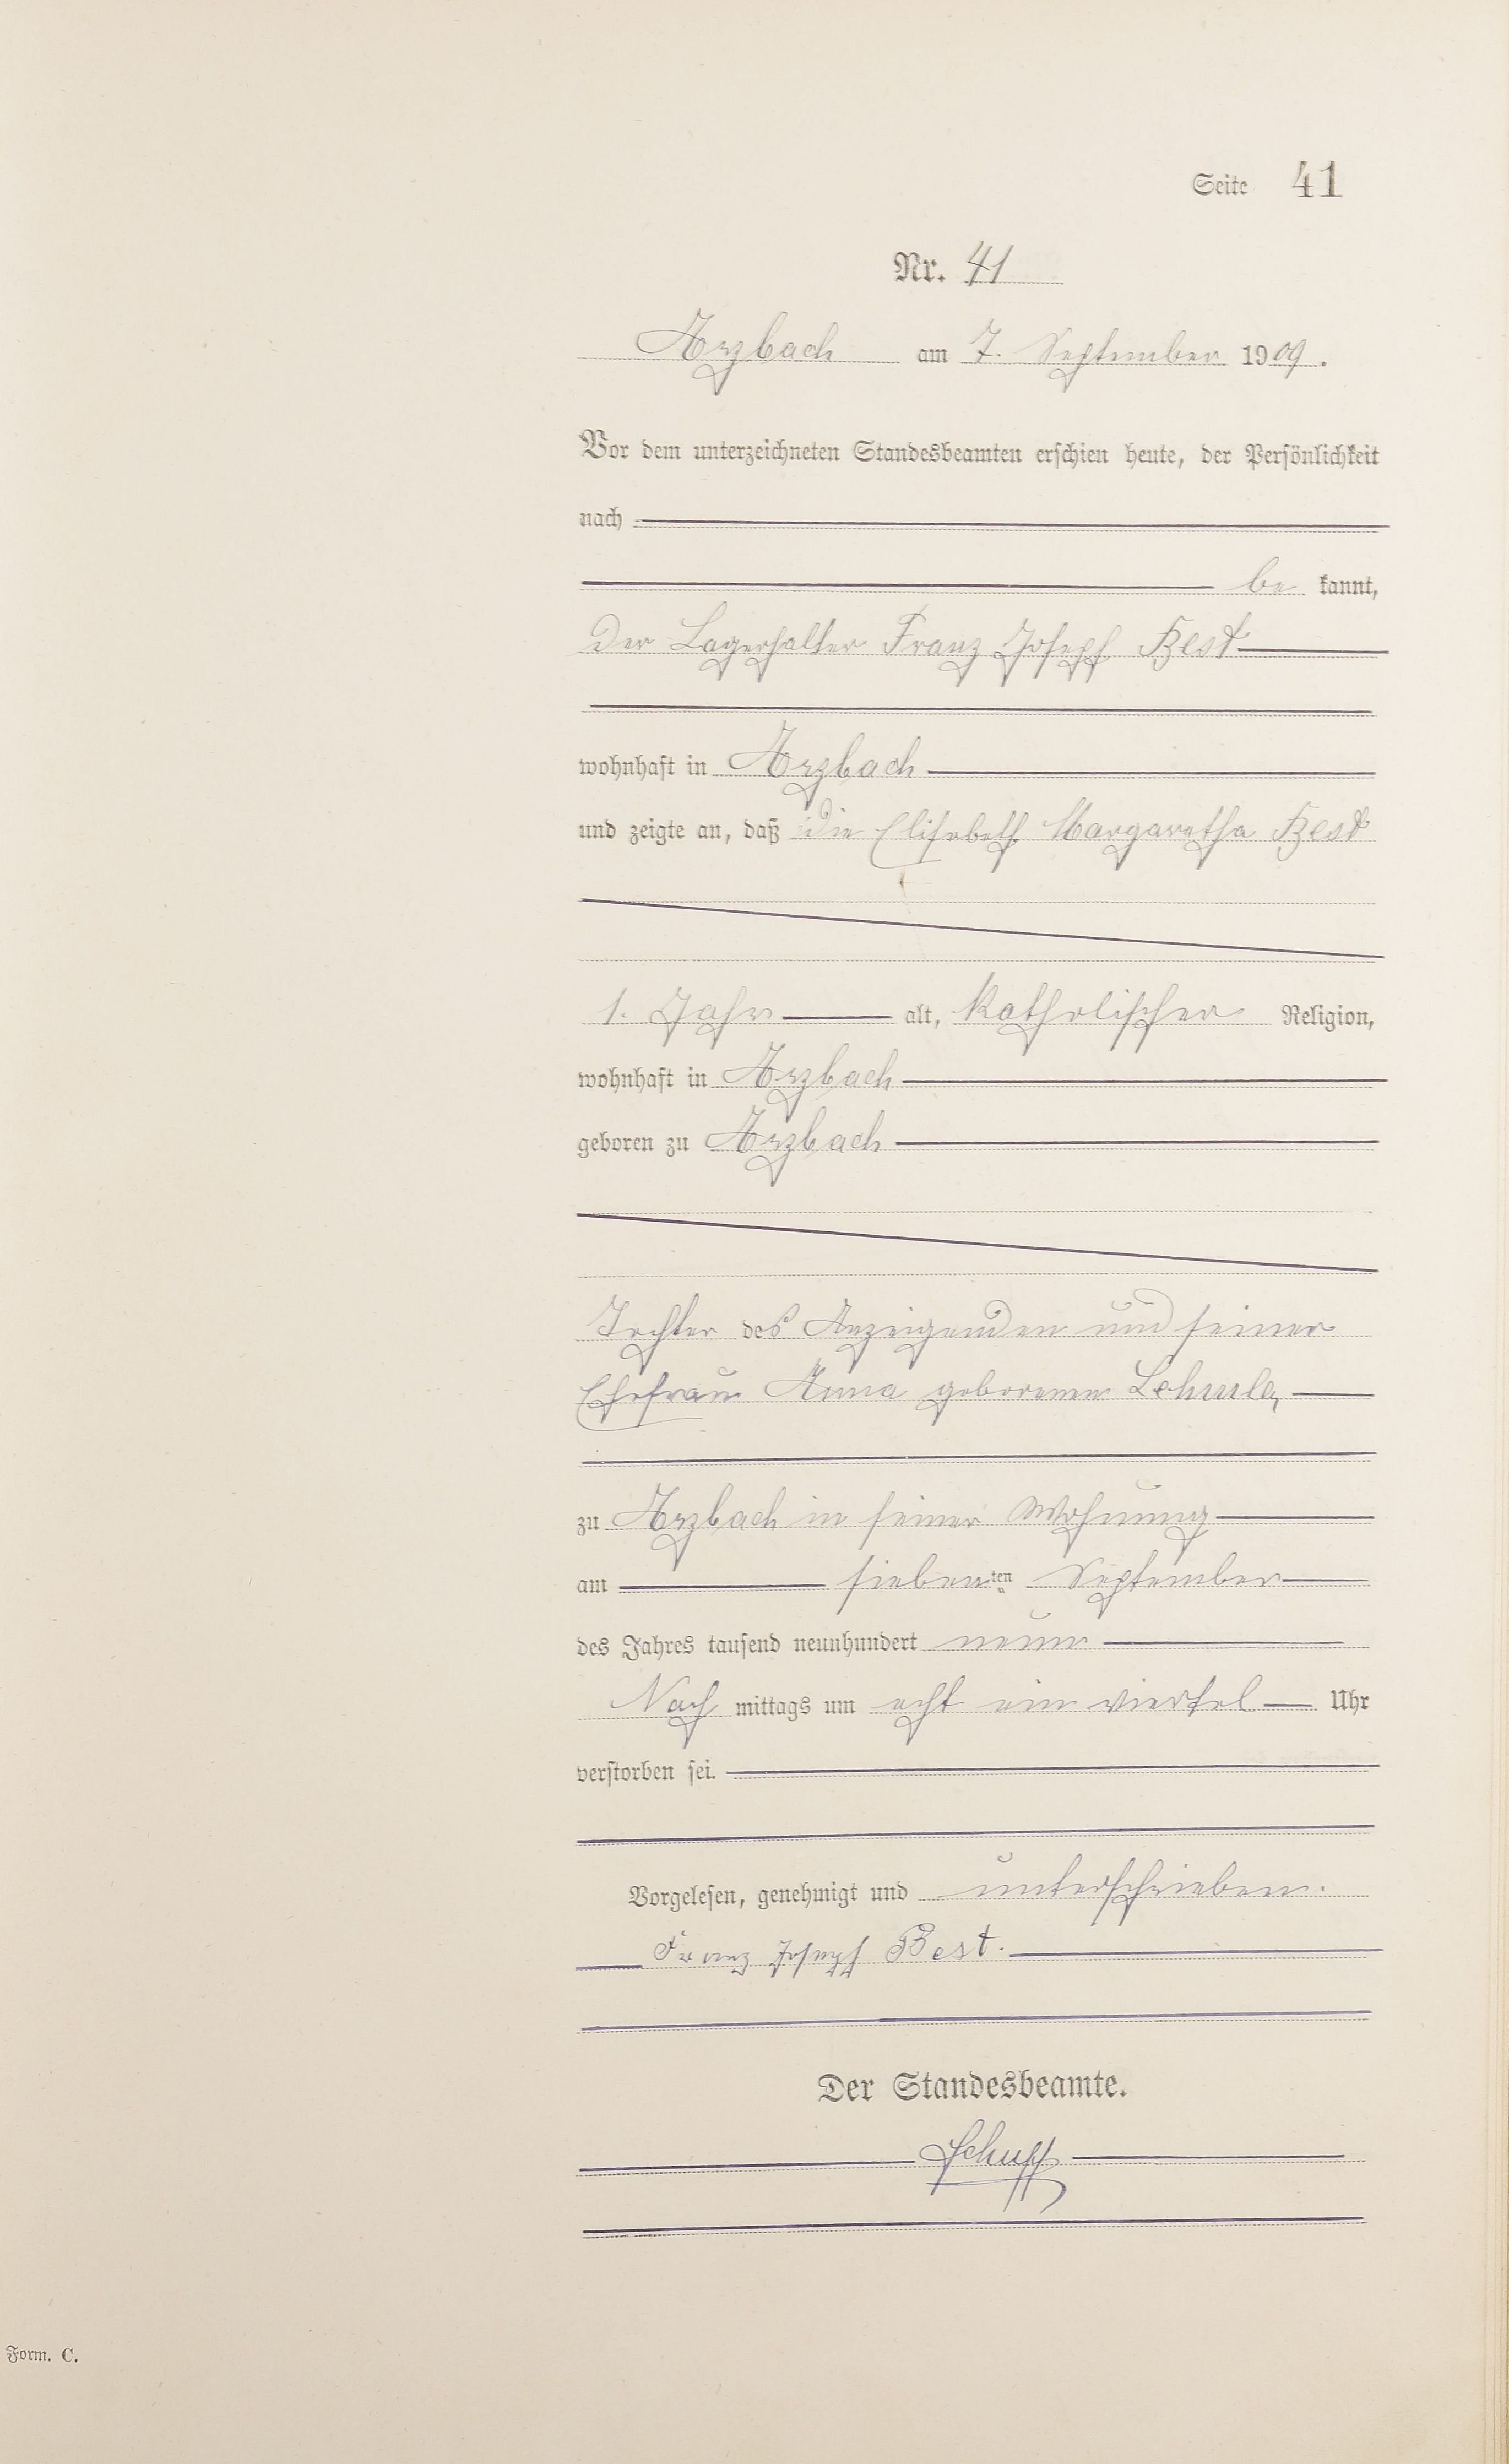 Seite 41
Nr. 41
Arzbach am 7. September 1909.
Vor dem unterzeichneten Standesbeamten erschien heute, der Persönlichkeit
nach
be kannt,
der Lagerhalter Franz Joseph Best
wohnhaft in Arzbach
und zeigte an, daß die Elisabeth Margaretha Best
1. Jahr alt, katholischer Religion,
wohnhaft in Arzbach
geboren zu Arzbach
Tochter des Anzeigenden und seiner
Ehefrau Anna geborenen
zu Arzbach in seiner Wohnung
am siebenten September
des Jahres tausend neunhundert neun
Nach mittags um acht ein viertel Uhr
verstorben sei.
Vorgelesen, genehmigt und unterschrieben.
Franz Joseph Best.
Der Standesbeamte.
Form. C.